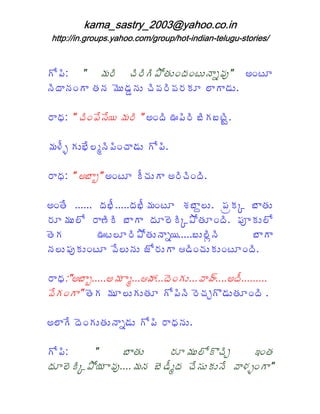 kama_sastry_2003@yahoo.co.in
http://in.groups.yahoo.com/group/hot-indian-telugu-stories/
గోపి: " మరి చిరిగి పోతుందంటున్నావు" అంటూ
నిదానంగా తన మొడ్డను చివరివరకూ లాగాడు.
రాధ: "చింపేసేయి మరి "అంది ఊపిరి బిగబట్టి.
మళ్ళీ గుభేల్మనిపించాడు గోపి.
రాధ: "అబ్బా" అంటూ కీచుగా అరిచింది.
అంతే ...... దభీ.....దభీ మంటూ శబ్దాలు. ప్రక్క బాతు
రూములో రాణికి బాగా దూలెక్కిపోతూంది. పూకులో
తెగ ఊటలూరిపోతున్నాయి....బుల్లిని బాగా
నలుపుకుంటూ వేలును జోరుగా ఆడించుకుంటూంది.
రాధ:"అబ్బా....అమ్మా...అహా...దెంగు...వాహ్....అదీ.........
వేగంగా"తెగ మూలుగుతూ గోపిని రెచ్చగొడుతూంది .
అలాగే దెంగుతున్నాడు గోపి రాధను.
గోపి: " బాతు రూములోకొచ్చి ఇంత
దూలెక్కిపోయావు....మన బెడ్మీద చేసుకునే వాళ్ళంగా"